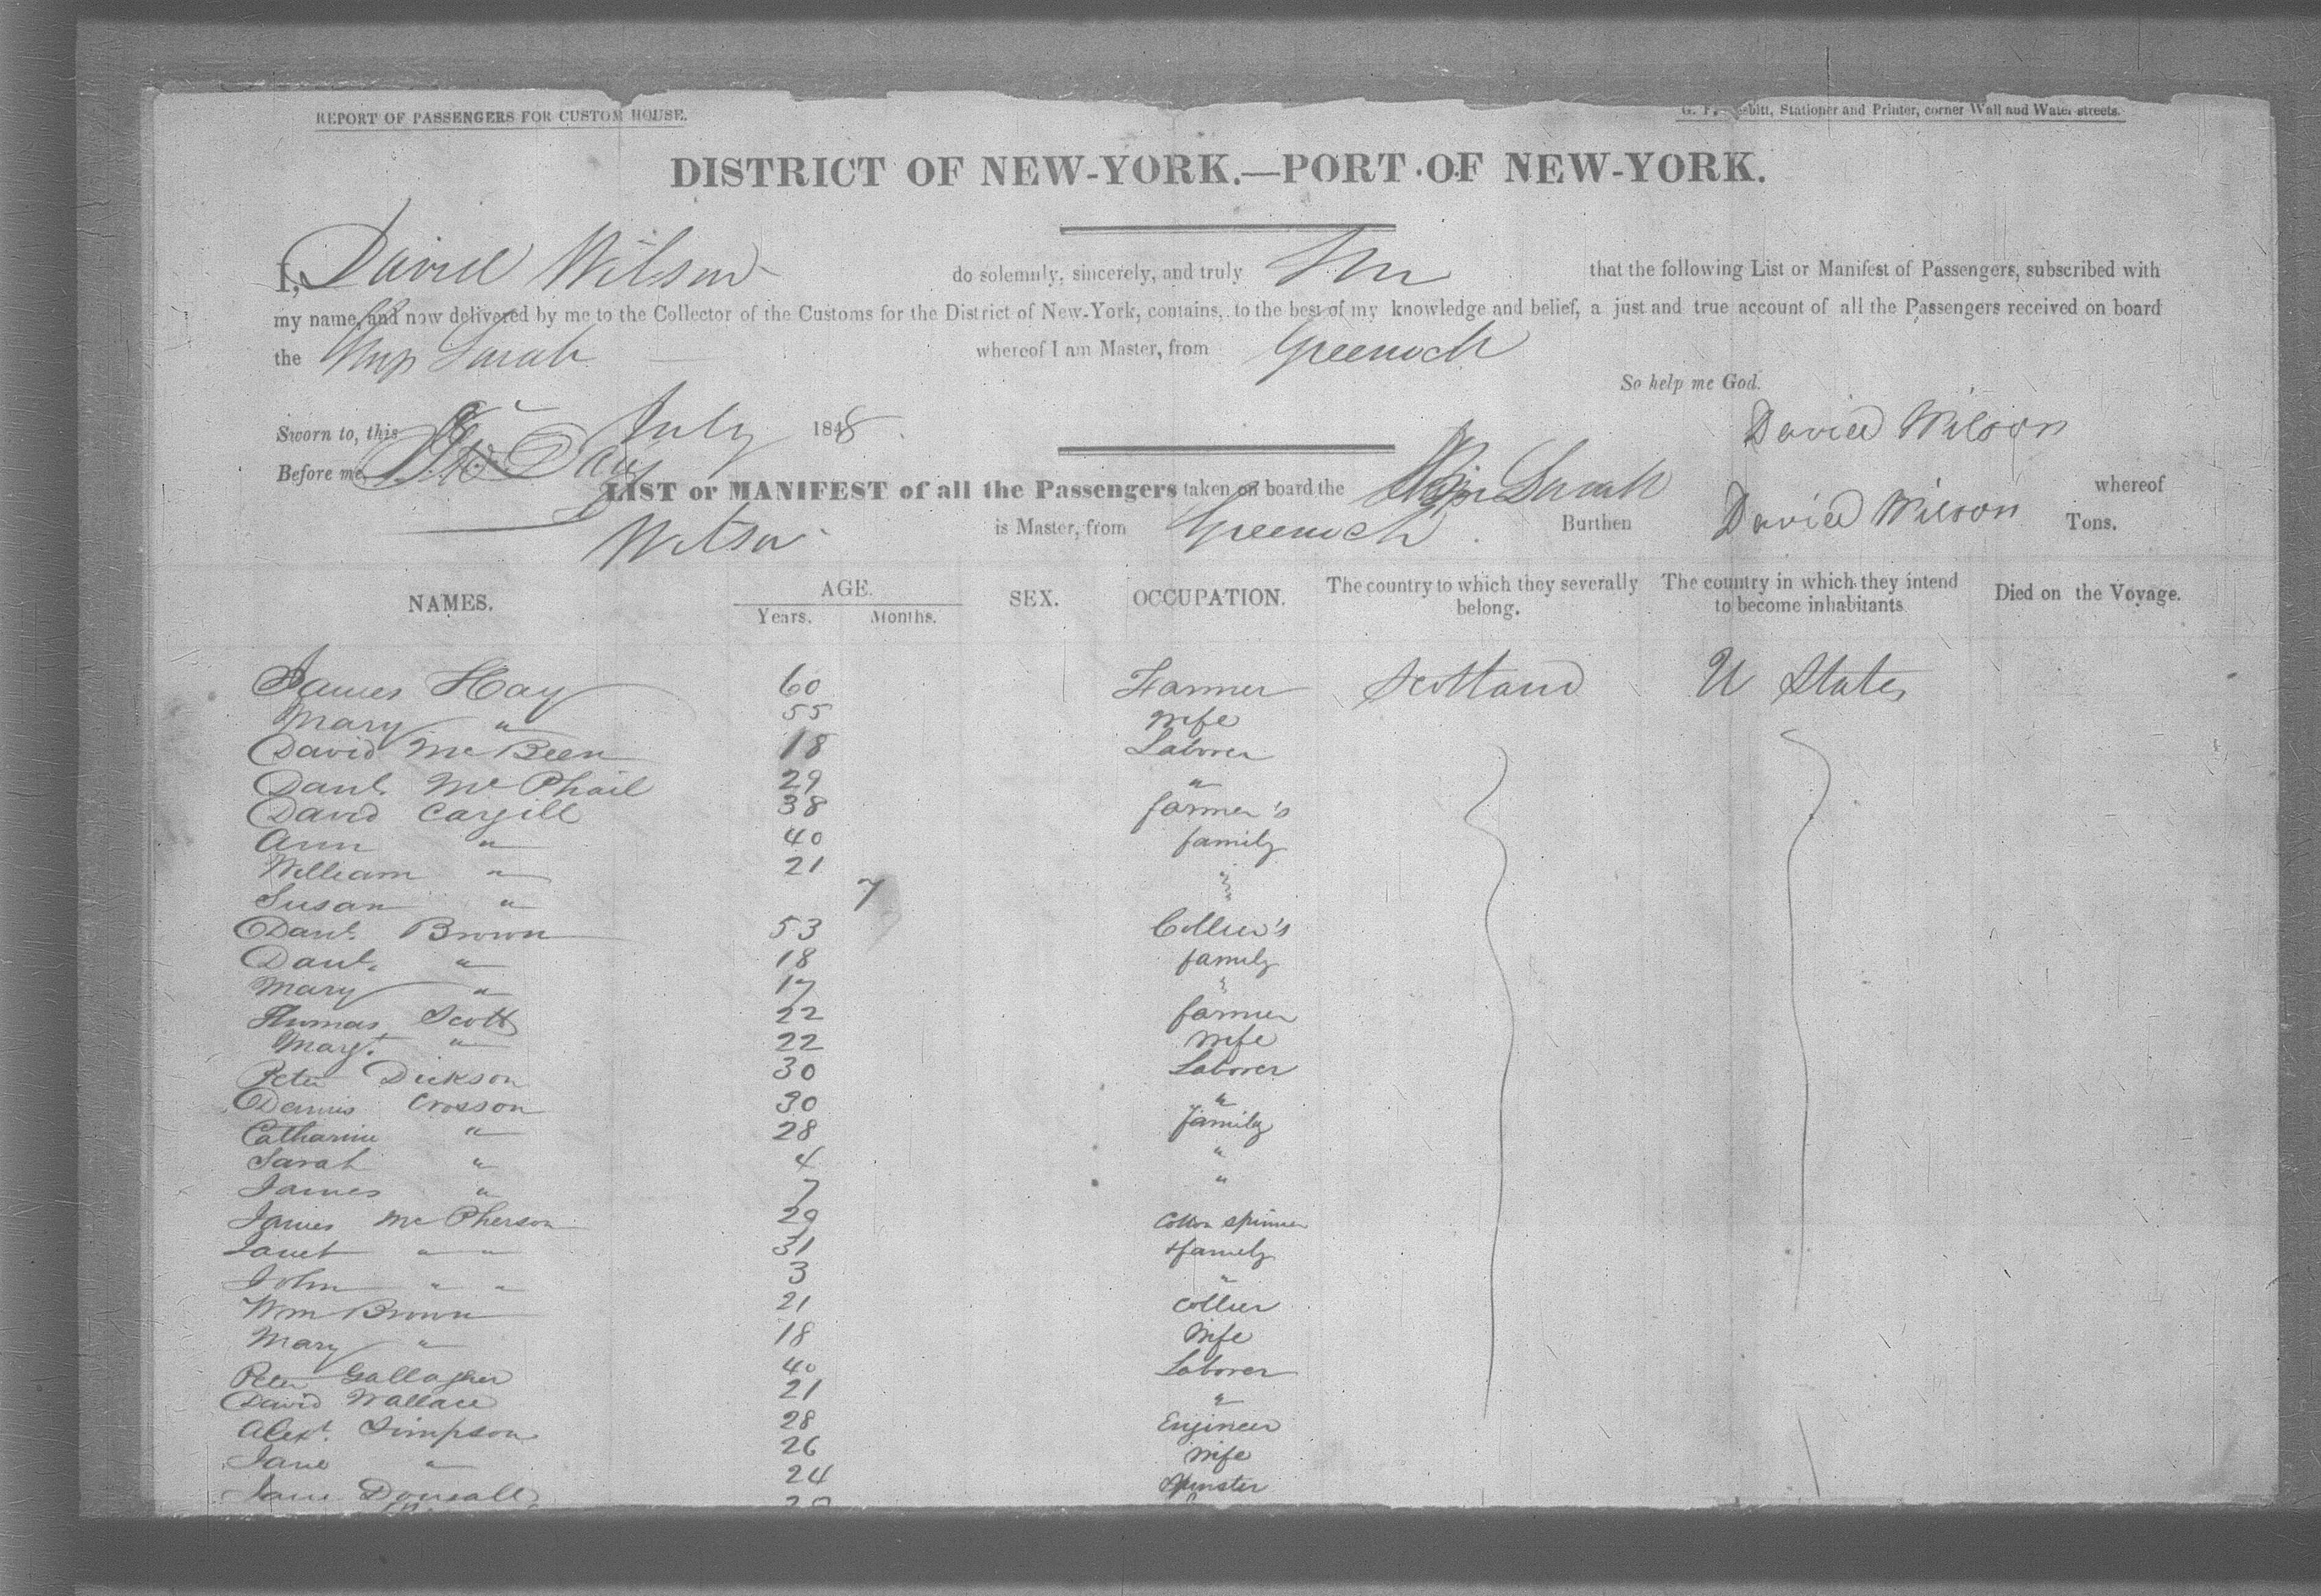 REPORT OF PASSENGERS FOR CUSTOM HOUSE.
G. F. Nesbitt, Stationer and Printer, corner Wall and Water streets.
DISTRICT OF NEW-YORK.—PORT OF NEW-YORK.
I, David Wilson do solemnly, sincerely, and truly that the following List or Manifest of Passengers, subscribed with
my name, and now delivered by me to the Collector of the Customs for the District of New-York, contains, to the best of my knowledge and belief, a just and true account of all the Passengers received on board
the Ship Sarah whereof I am Master, from Greenock
So help me God.
Sworn to, this 8 July 1848. David Wilson
Before me,
LIST or MANIFEST of all the Passengers taken on board the Ship Sarah David Wilson whereof
Wilson is Master, from Greenock Burthen Tons.
NAMES. AGE. SEX. OCCUPATION. The country to which they severally belong. The country in which they intend to become inhabitants Died on the Voyage.
Years. Months.
James Hay 60 Farmer Scotland U States
Mary " 55 Wife
David McBeen 18 Laborer
Danl. McPhail 29 "
David Cargill 38 farmer's
Ann " 40 family
William " 21 "
Susan " 7 "
Danl. Brown 53 Collier's
Danl. " 18 family
Mary " 17 "
Thomas Scott 22 farmer
Margt. " 22 Wife
Peter Dickson 30 Laborer
Dennis Crosson 30 "
Catharine " 28 family
Sarah " 4 "
James " 7 "
James McPherson 29 Cotton spinner
Janet " " 31 family
John " " 3 "
Wm Brown 21 Collier
Mary " 18 Wife
Peter Gallagher 40 Laborer
David Wallace 21 "
Alexr. Simpson 28 Engineer
Jane " 26 Wife
Jane Dougall 24 Spinster